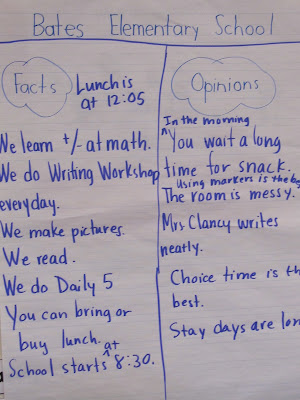 Bates Elementary School
Facts
Lunch is
at 12:05
We learn +/- at math.
We do Writing Workshop
everyday.
We make pictures.
We read.
We do Daily 5
You can bring or
buy lunch.
School starts at 8:30.
Opinions
In the morning
^You wait a long
time for snack.
Using markers is the
The room is messy.
Mrs Clancy writes
neatly.
Choice time is the
best.
Stay days are